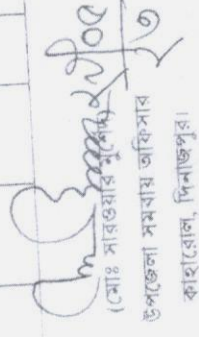 ২৭/০৫/২৩
(মোঃ সারওয়ার মুর্শেদ)
উপজেলা সমবায় অফিসার
কাহারোল, দিনাজপুর।